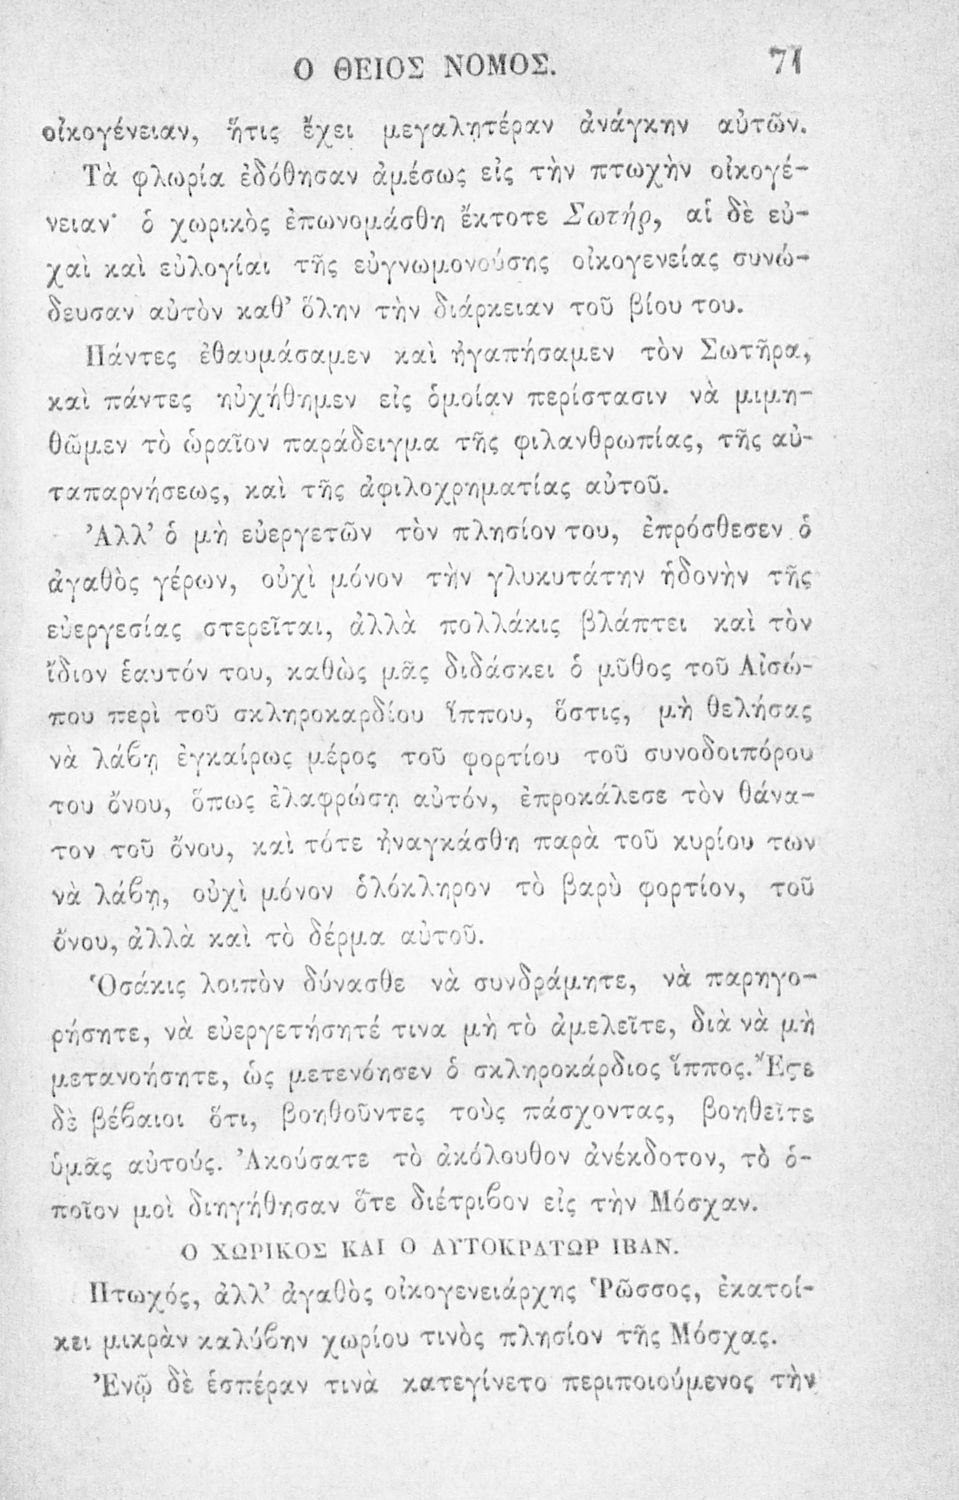 Ο ΘΕΙΟΣ ΝΟΜΟΣ. 71
οἰκογένειαν, ἥτις ἔχει μεγαλητέραν ἀνάγκην αὐτῶν.
Τὰ φλωρία ἐδόθησαν ἀμέσως εἰς τὴν πτωχὴν οἰκογέ-
νειαν· ὁ χωρικὸς ἐπωνομάσθη ἔκτοτε Σωτήρ, αἱ δὲ εὐ-
χαὶ καὶ εὐλογίαι τῆς εὐγνωμονούσης οἰκογενείας συνώ-
δευσαν αὐτὸν καθ’ ὅλην τὴν διάρκειαν τοῦ βίου του.
Πάντες ἐθαυμάσαμεν καὶ ἠγαπήσαμεν τὸν Σωτῆρα,
καὶ πάντες ηὐχήθημεν εἰς ὁμοίαν περίστασιν νὰ μιμη-
θῶμεν τὸ ὡραῖον παράδειγμα τῆς φιλανθρωπίας, τῆς αὐ-
ταπαρνήσεως, καὶ τῆς ἀφιλοχρηματίας αὐτοῦ.
Ἀλλ’ ὁ μὴ εὐεργετῶν τὸν πλησίον του, ἐπρόσθεσεν ὁ
ἀγαθὸς γέρων, οὐχὶ μόνον τὴν γλυκυτάτην ἡδονὴν τῆς
εὐεργεσίας στερεῖται, ἀλλὰ πολλάκις βλάπτει καὶ τὸν
ἴδιον ἑαυτόν του, καθὼς μᾶς διδάσκει ὁ μῦθος τοῦ Αἰσώ-
που περὶ τοῦ σκληροκαρδίου ἵππου, ὅστις, μὴ θελήσας
νὰ λάβῃ ἐγκαίρως μέρος τοῦ φορτίου τοῦ συνοδοιπόρου
του ὄνου, ὅπως ἐλαφρώσῃ αὐτόν, ἐπροκάλεσε τὸν θάνα-
τον τοῦ ὄνου, καὶ τότε ἠναγκάσθη παρὰ τοῦ κυρίου των
νὰ λάβῃ, οὐχὶ μόνον ὁλόκληρον τὸ βαρὺ φορτίον, τοῦ
ὄνου, ἀλλὰ καὶ τὸ δέρμα αὐτοῦ.
Ὁσάκις λοιπὸν δύνασθε νὰ συνδράμητε, νὰ παρηγο-
ρήσητε, νὰ εὐεργετήσητέ τινα μὴ τὸ ἀμελεῖτε, διὰ νὰ μὴ
μετανοήσητε, ὡς μετενόησεν ὁ σκληροκάρδιος ἵππος. Ἔϛε
δὲ βέβαιοι ὅτι, βοηθοῦντες τοὺς πάσχοντας, βοηθεῖτε
ὑμᾶς αὐτούς. Ἀκούσατε τὸ ἀκόλουθον ἀνέκδοτον, τὸ ὁ-
ποῖον μοὶ διηγήθησαν ὅτε διέτριβον εἰς τὴν Μόσχαν.
Ο ΧΩΡΙΚΟΣ ΚΑΙ Ο ΑΥΤΟΚΡΑΤΩΡ ΙΒΑΝ.
Πτωχός, ἀλλ’ ἀγαθὸς οἰκογενειάρχης Ῥῶσσος, ἐκατοί-
κει μικρὰν καλύβην χωρίου τινὸς πλησίον τῆς Μόσχας.
Ἐνῷ δὲ ἑσπέραν τινὰ κατεγίνετο περιποιούμενος τὴν